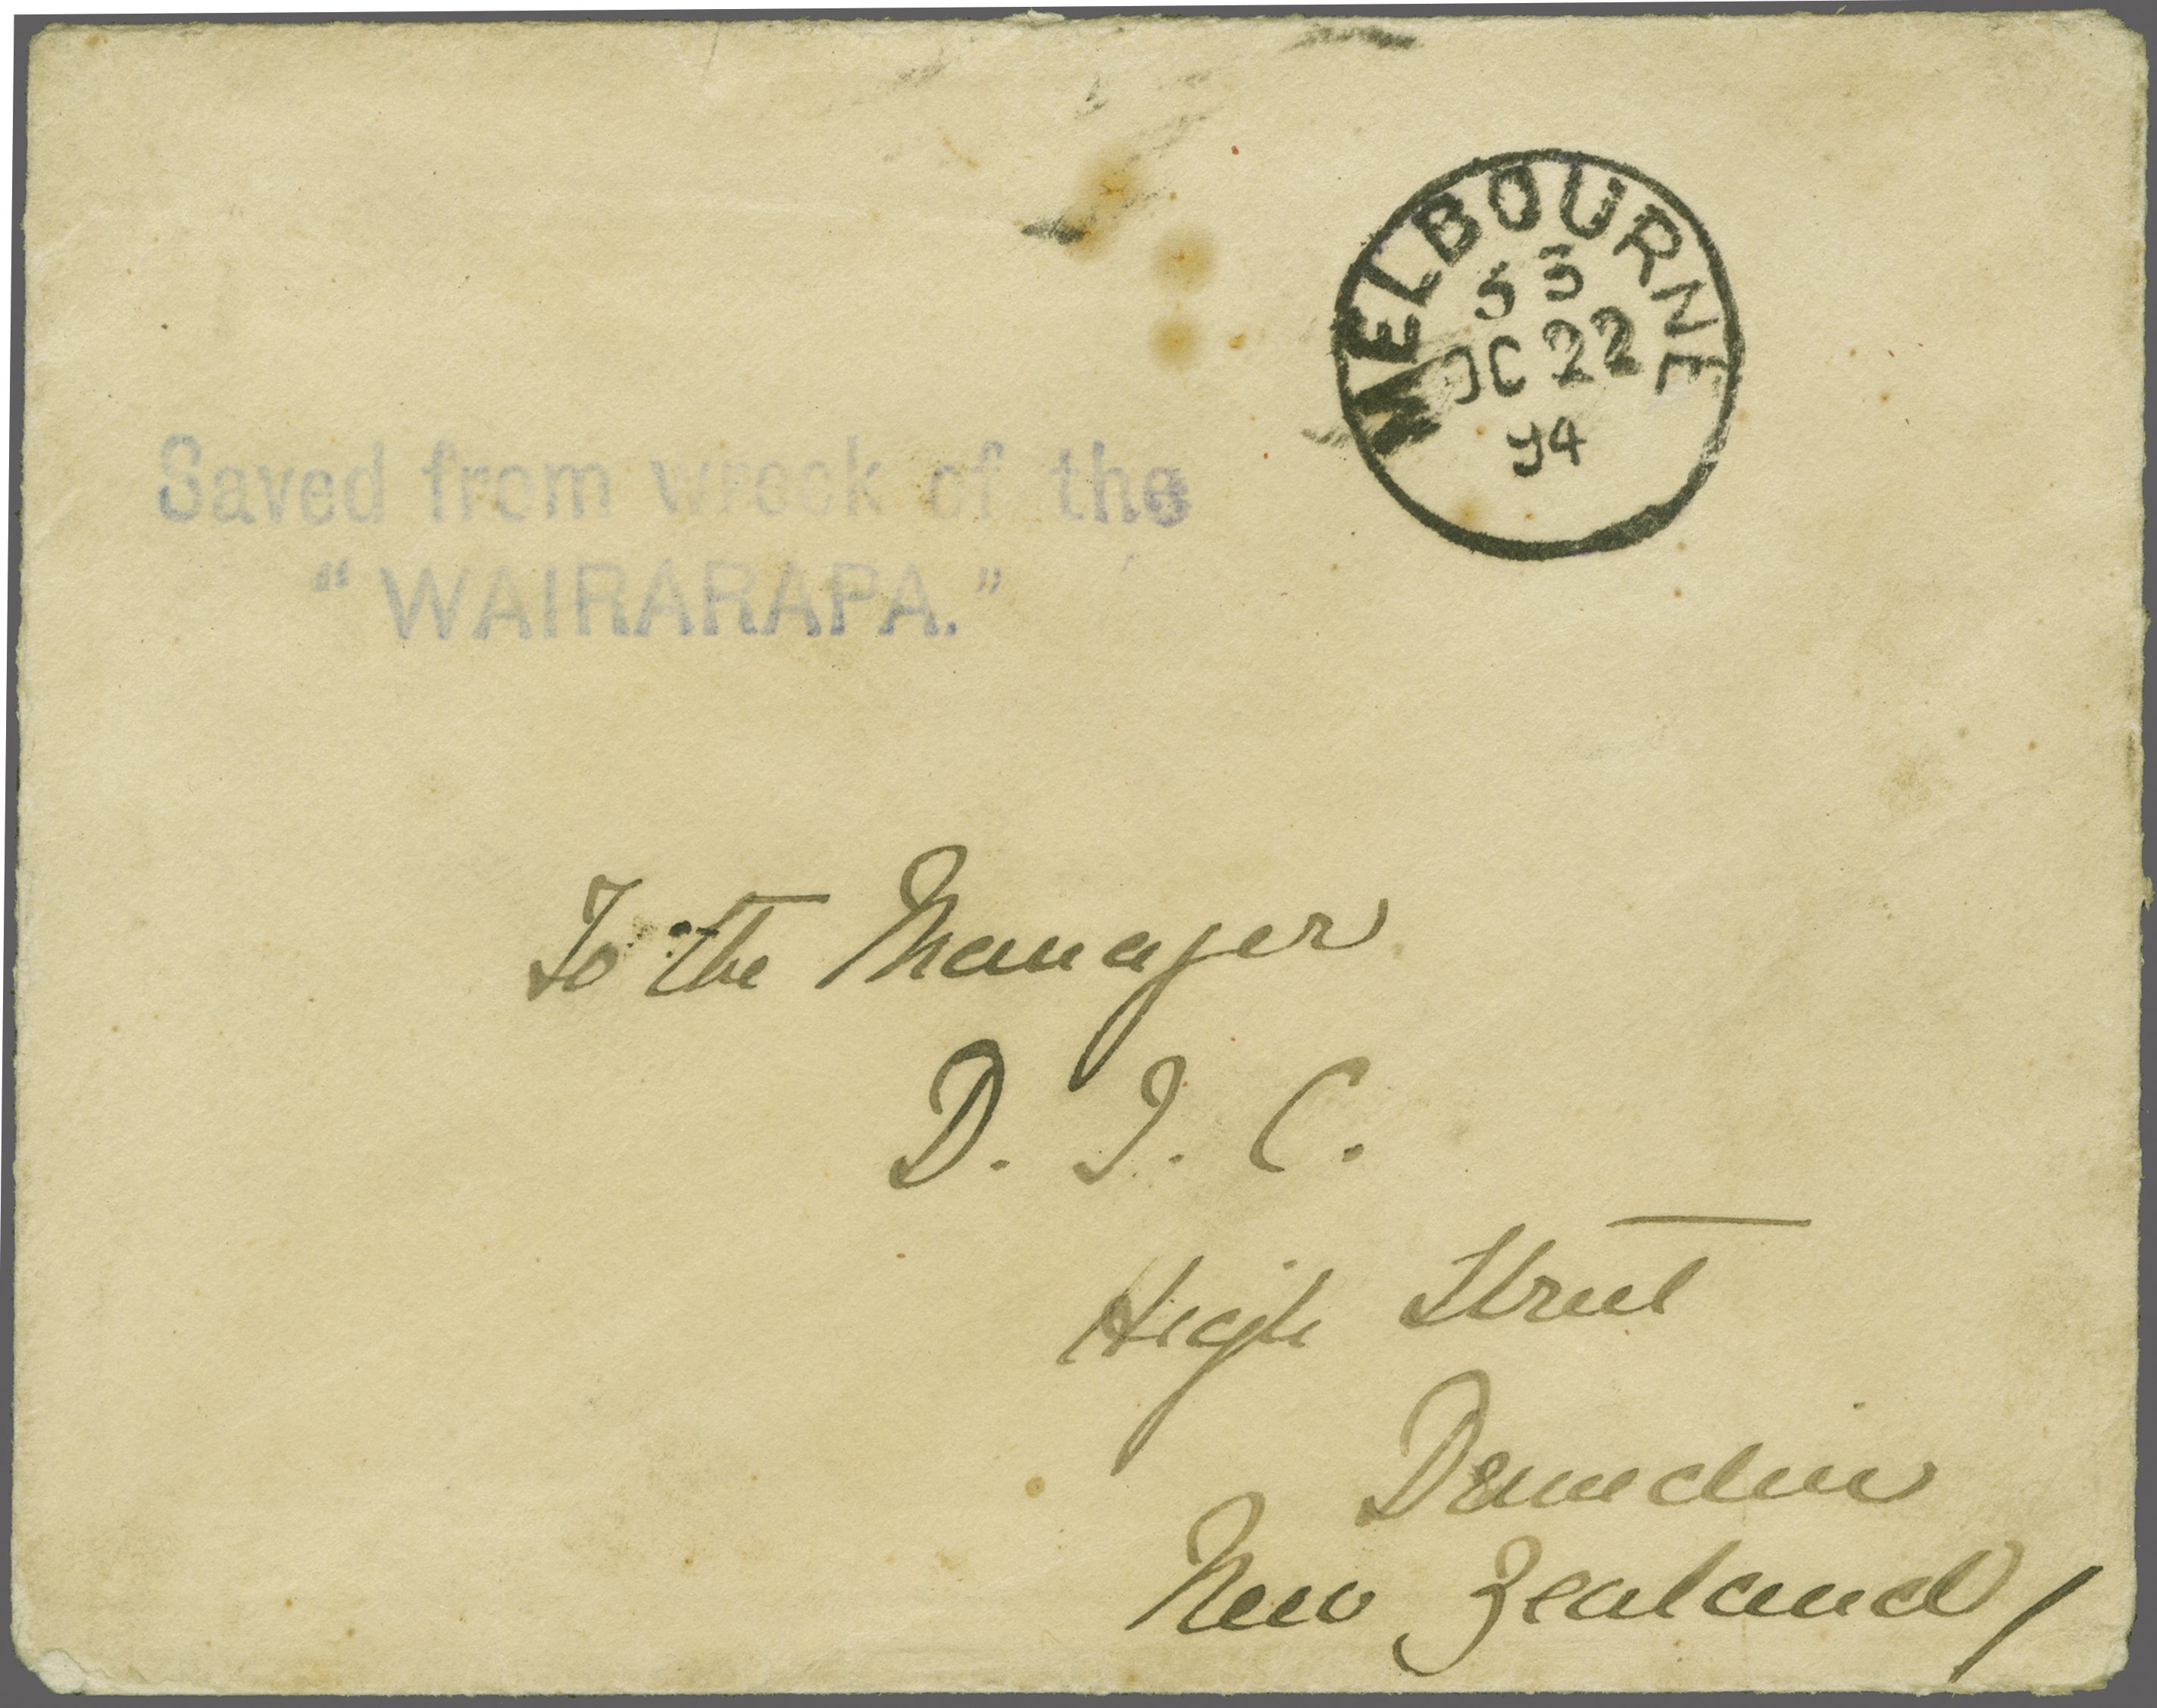 MELBOURNE
5 5
OC 22
94
Saved from wreck of the
" WAIRARAPA."
To the Manager
D. I. C.
High Street
Dunedin
New Zealand